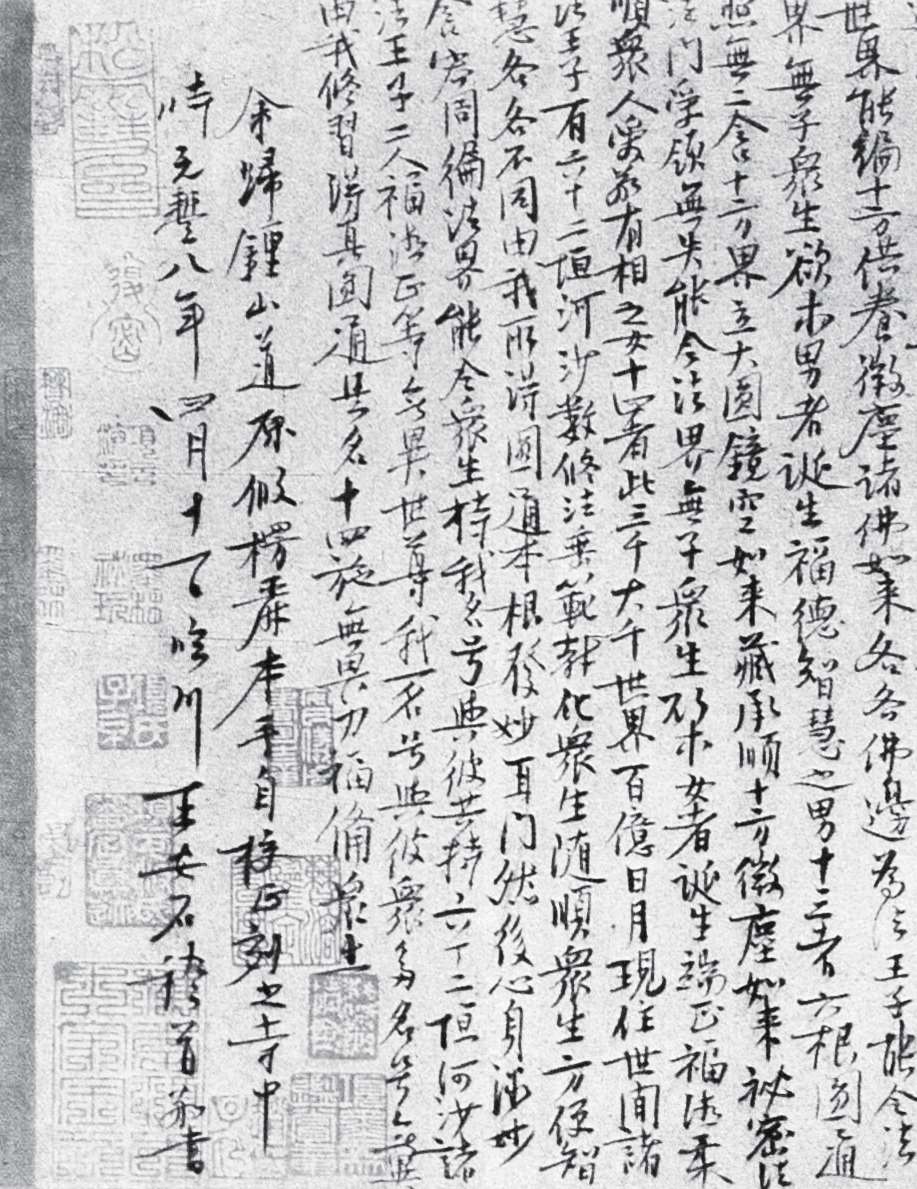 世界能徧十方供養微塵諸佛如來各各佛邊為法王子能令法
界無子眾生欲求男者誕生福德智慧之男十三者六根圓通
照無二含十方界立大圓鏡空如來藏承順十方微塵如來祕密
法門受領無失能令法界無子眾生欲求女者誕生端正福德柔
順眾人愛敬有相之女十四者此三千大千世界百億日月現住世間諸
法王子有六十二恒河沙數修法垂範教化眾生隨順眾生方便智
慧各各不同由我所得圓通本根發妙耳門然後心身微妙
含容周徧法界能令眾生持我名号與彼共持六十二恒河沙諸
法王子二人福德正等無異世尊我一名号與彼眾多名号無異
由我修習得真圓通是名十四施無畏力福備眾生
余歸鍾山道原假楞嚴本手自校正刻之寺中
時元豐八年四月十一日臨川王安石稽首敬書